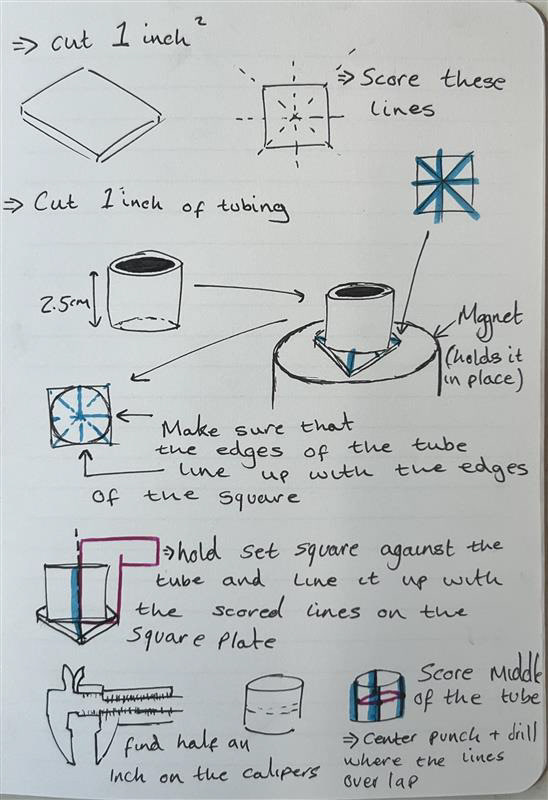 ⇒ cut 1 inch²
⇒ Score these
lines
⇒ Cut 1 inch of tubing
2.5cm
Magnet
(holds it
in place)
Make sure that
the edges of the tube
line up with the edges
of the square
⇒ hold set square against the
tube and line it up with
the scored lines on the
square plate
find half an
inch on the calipers
Score Middle
of the tube
⇒ Center punch + drill
where the lines
over lap